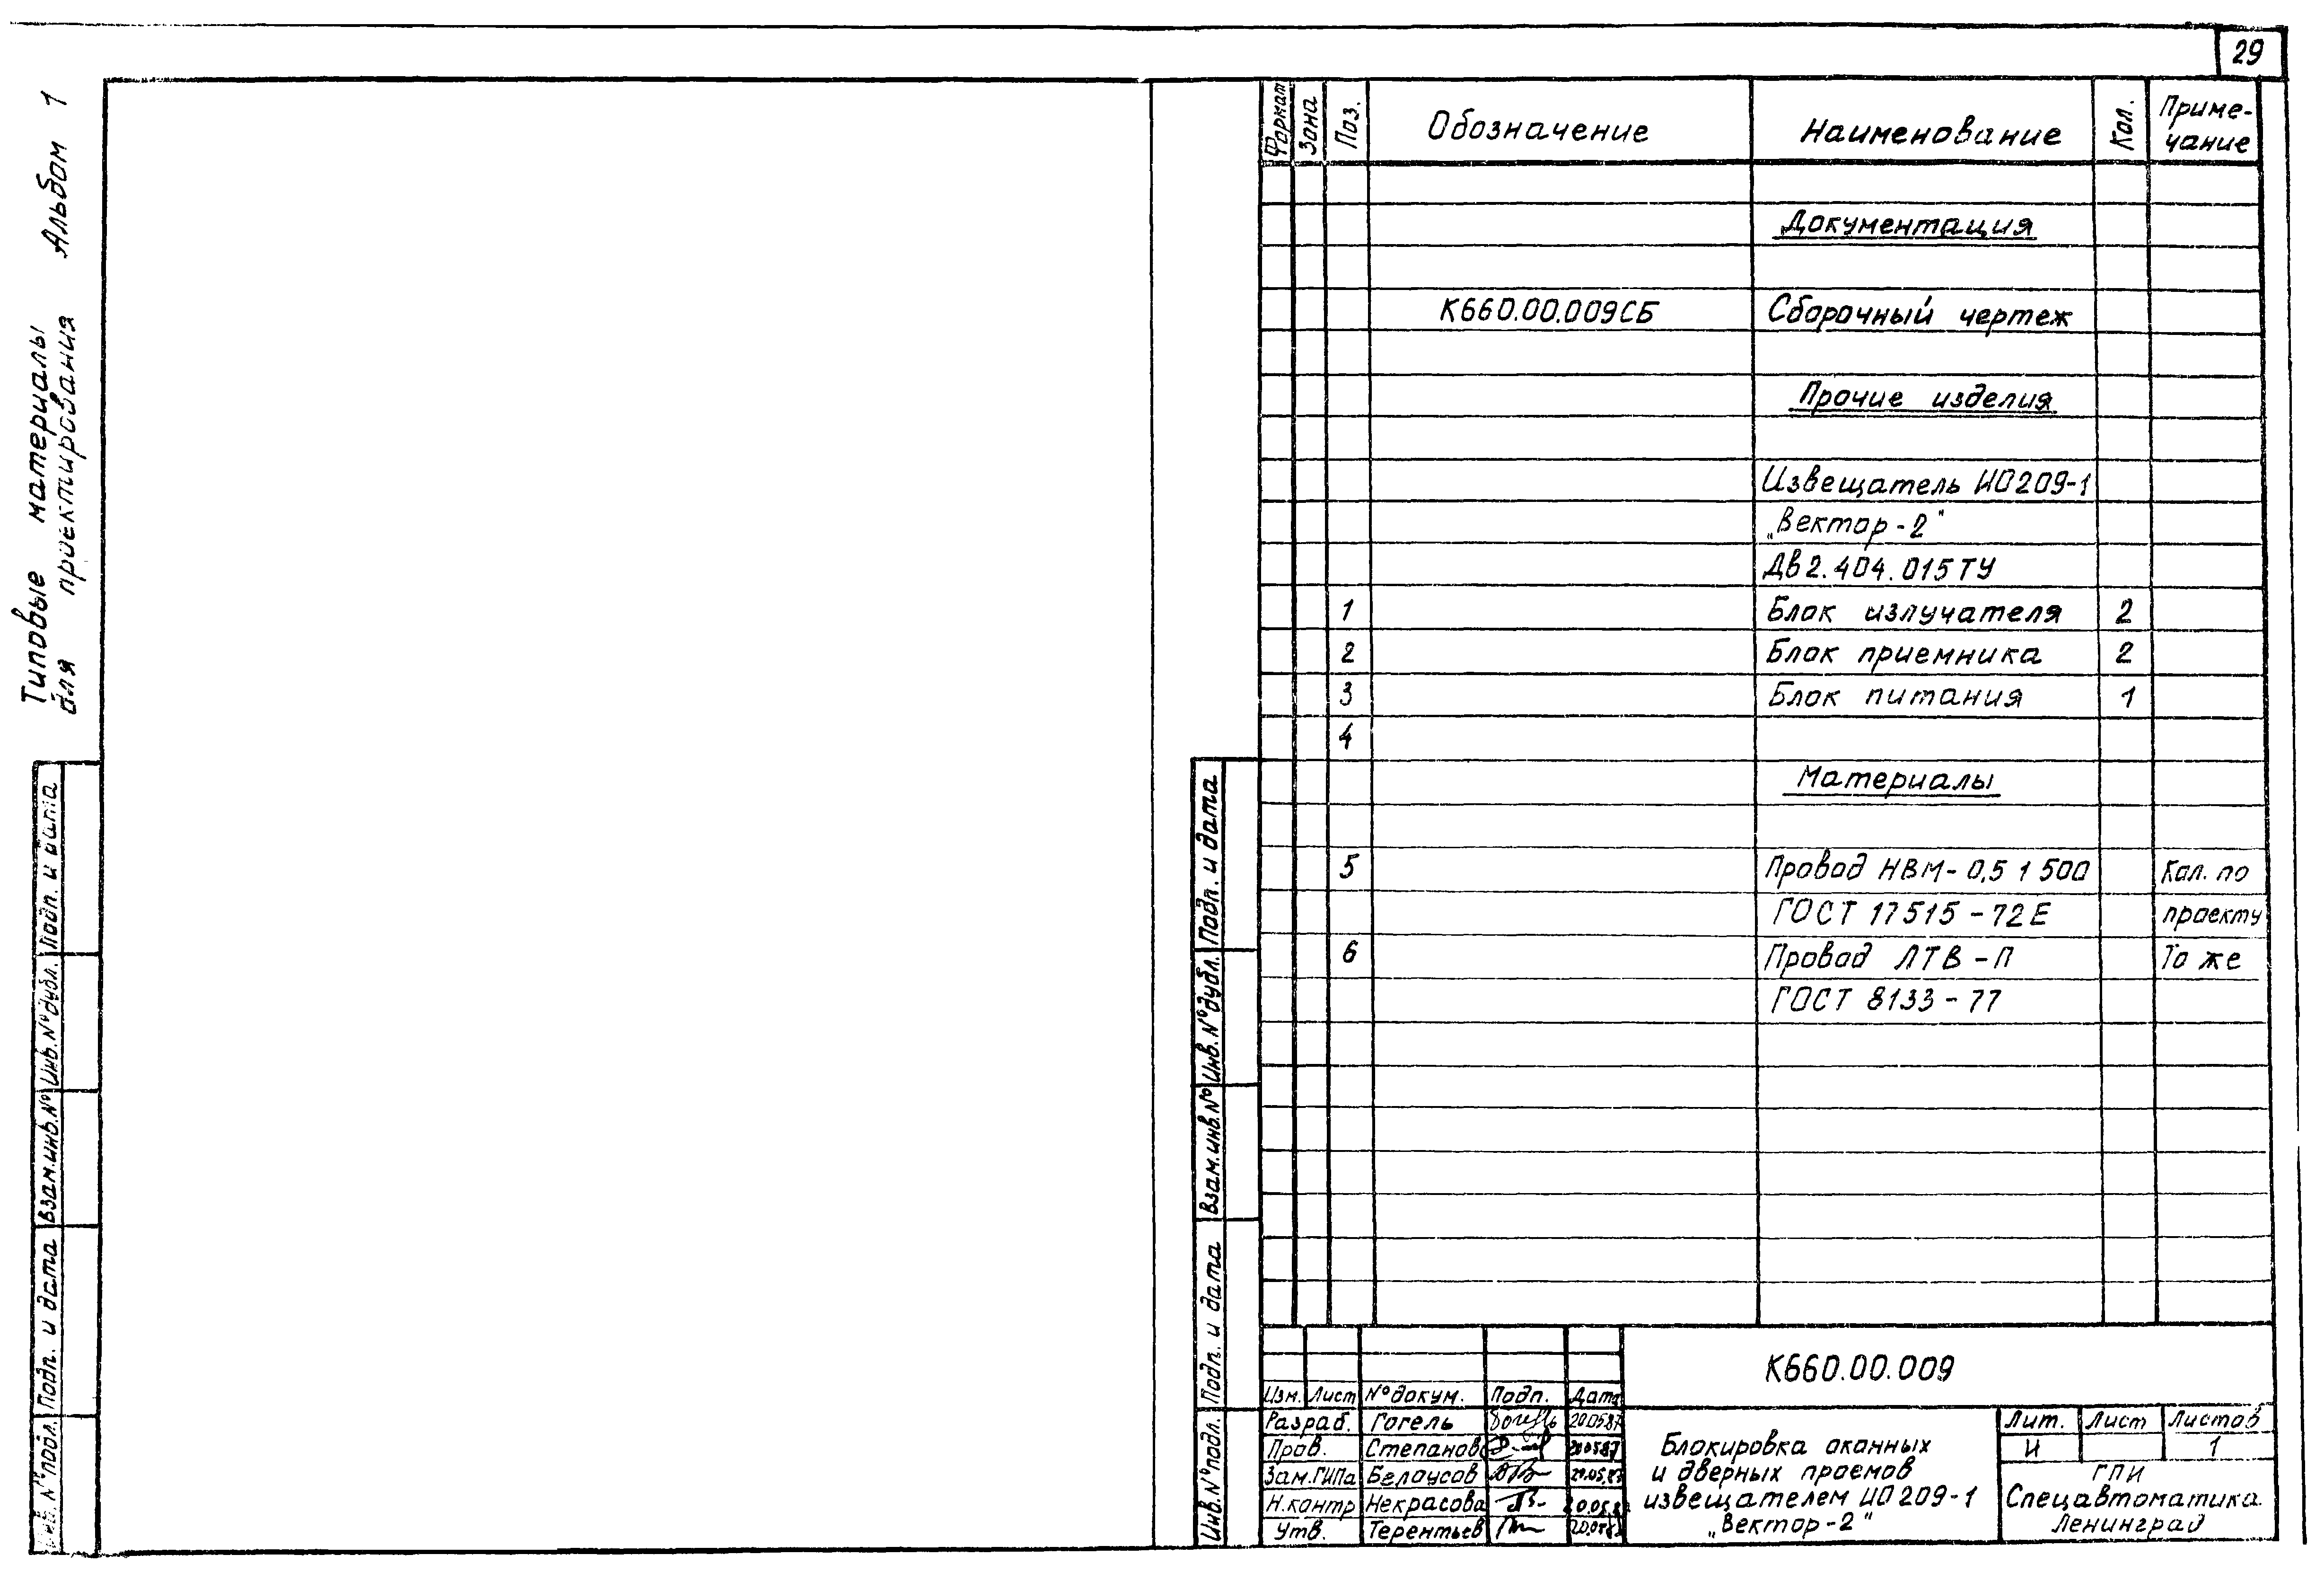 29
Типовые материалы
для проектирования
Альбом 1
Формат
Зона
Поз.
Обозначение
Наименование
Кол.
Приме-
чание
Документация
К660.00.009СБ Сборочный чертеж
Прочие изделия
Извещатель ИО209-1
„Вектор-2"
Дв2.404.015ТУ
1 Блок излучателя 2
2 Блок приемника 2
3 Блок питания 1
4
Материалы
5 Провод НВМ-0,5 1 500 Кол. по
ГОСТ 17515-72Е проекту
6 Провод ЛТВ-П То же
ГОСТ 8133-77
Подп. и дата
Инв.№дубл.
Взам.инв.№
Подп. и дата
Инв.№подл.
Подп. и дата
Инв.№дубл.
Взам.инв.№
Подп. и дата
Инв.№подл.
К660.00.009
Изм. Лист №докум. Подп. Дата
Разраб. Гогель 20.05.87
Пров. Степанов 20.05.87
Зам.ГИПа Белоусов
Н.контр Некрасова
Утв. Терентьев
Блокировка оконных
и дверных проемов
извещателем ИО209-1
„Вектор-2"
Лит. Лист Листов
И 1
ГПИ
Спецавтоматика
Ленинград